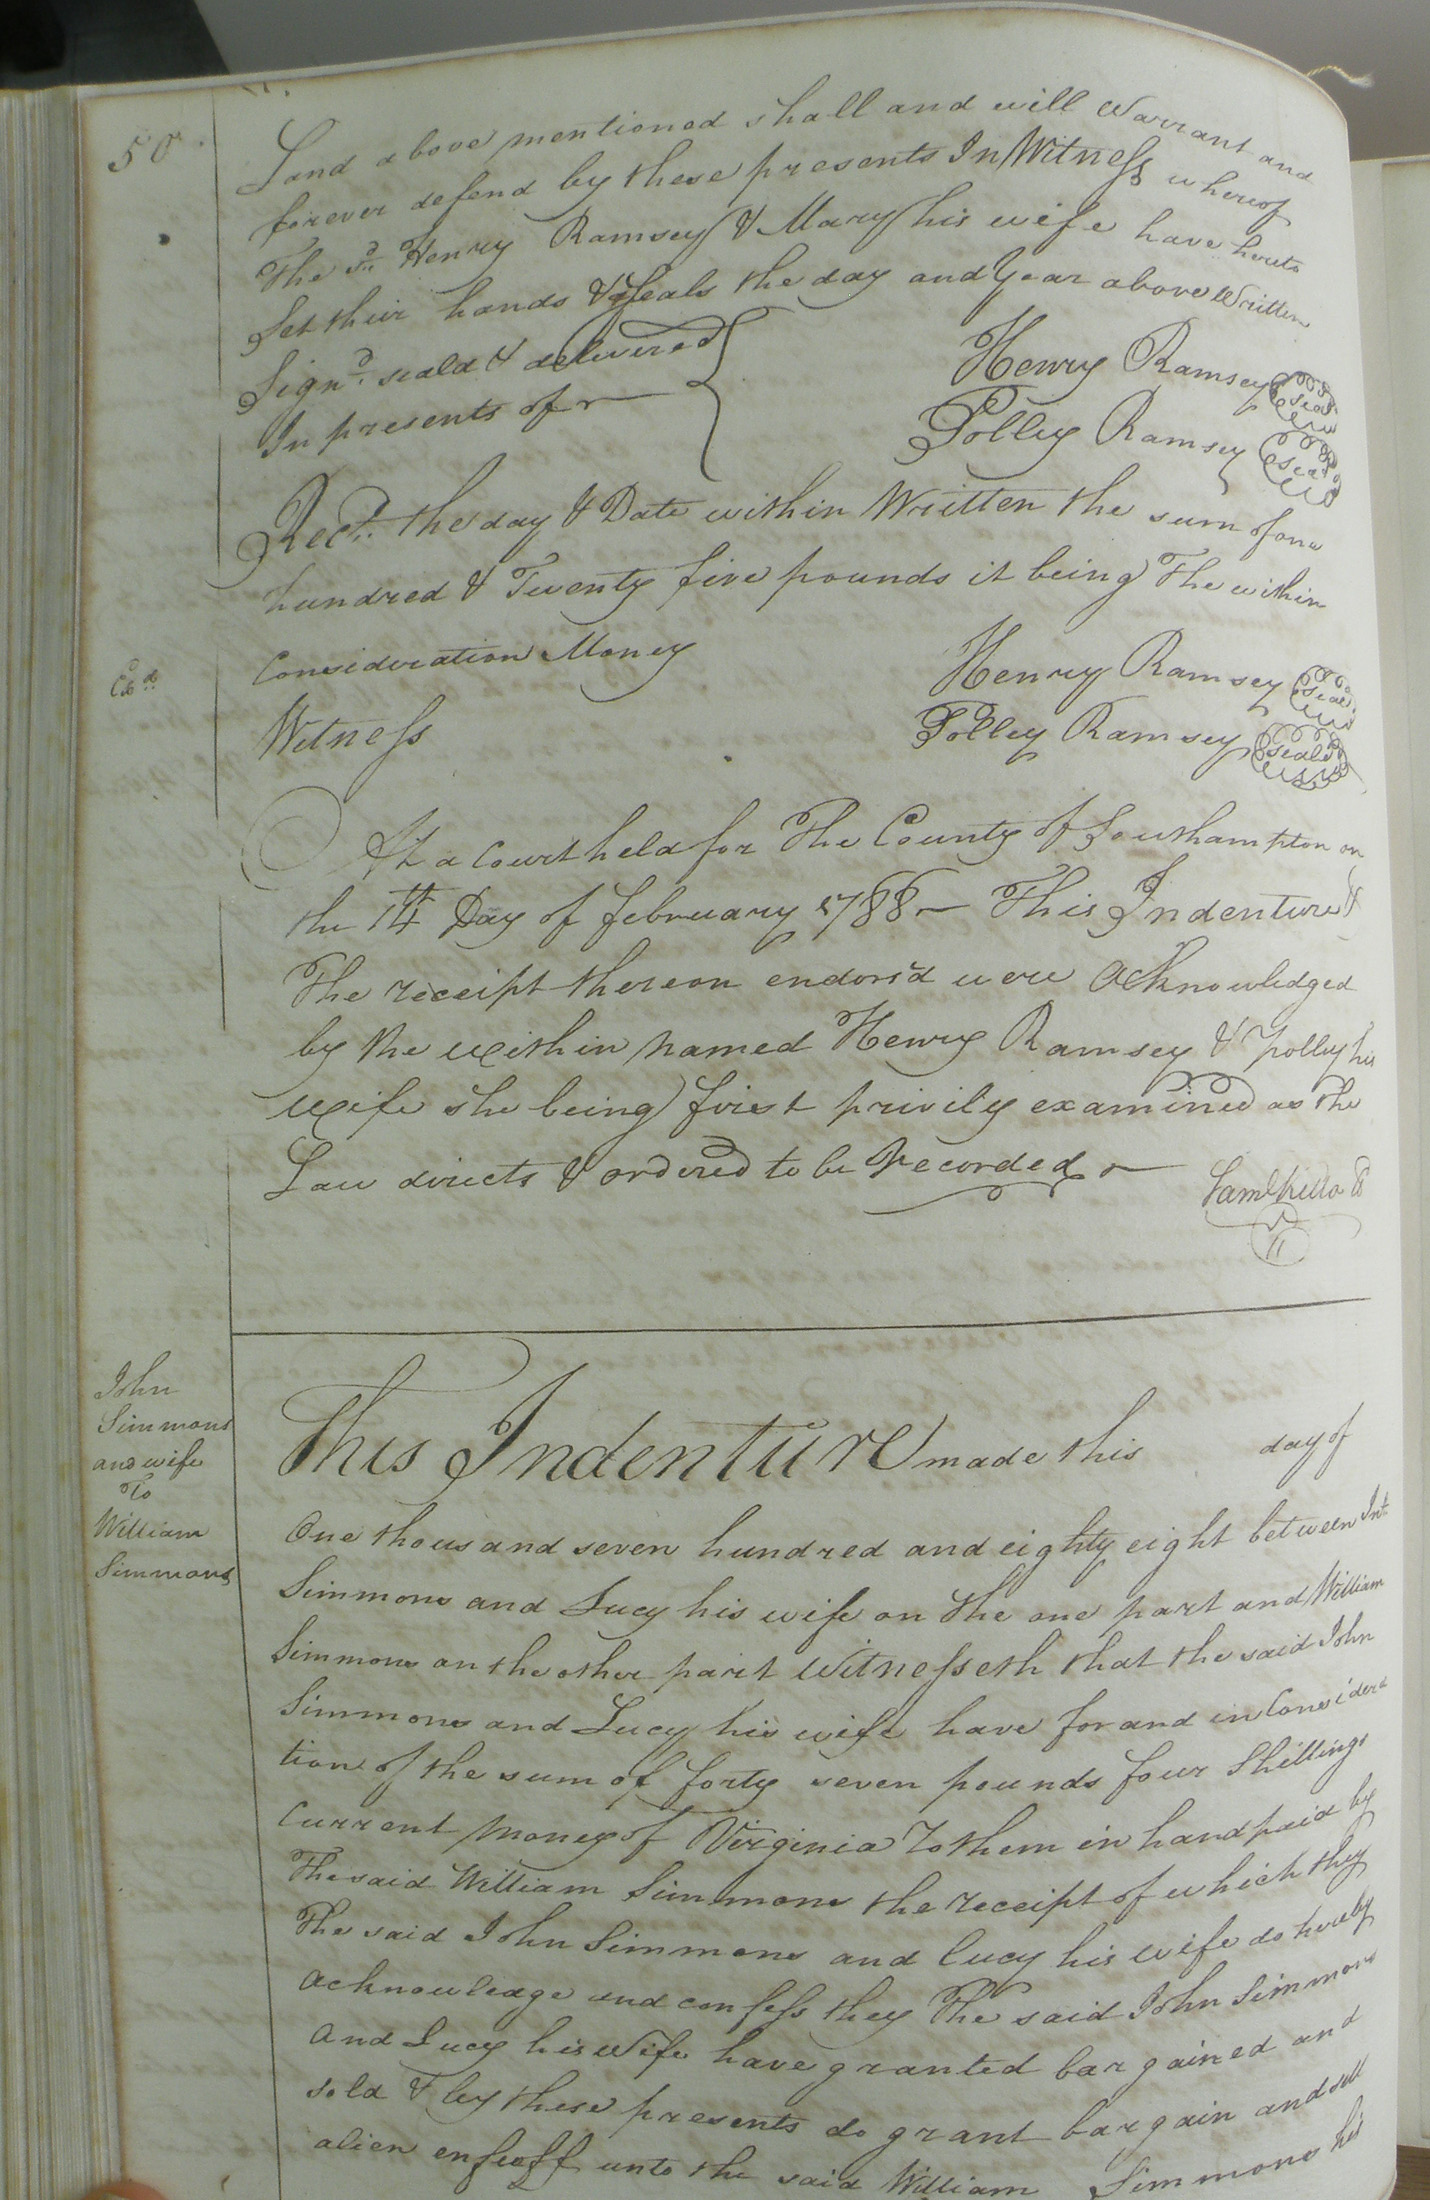 50
Land above mentioned shall and will Warrant and
forever defend by these presents In Witness whereof
The sd. Henry Ramsey & Mary his wife have hereto
Set their hands & seals the day and year above Written
Signd. seald & delivered
In presents of
Henry Ramsey seal
Polley Ramsey seal
Recd. the day & Date within Written the sum of one
hundred & Twenty five pounds it being The within
Consideration Money
Exd.
Henry Ramsey seal
Witness
Polley Ramsey seal
At a Court held for The County of Southampton on
the 14th Day of february 1788 — This Indenture &
The receipt thereon endors'd were acknowledged
by the within named Henry Ramsey & polley his
wife she being first privily examined as the
Law directs & ordered to be Recorded
Saml Kello
John
Simmons
and wife
To
William
Simmons
This Indenture made this day of
One thousand seven hundred and eighty eight between Jno
Simmons and Lucy his wife on the one part and William
Simmons on the other part Witnesseth that the said John
Simmons and Lucy his wife have for and in Considera
tion of the sum of forty seven pounds four Shillings
Current money of Virginia To them in hand paid by
The said William Simmons the receipt of which they
The said John Simmons and Lucy his wife do hereby
acknowledge and confess they The said John Simmons
and Lucy his Wife have granted bargained and
sold & by these presents do grant bargain and sell
alien enfeoff unto the said William Simmons his